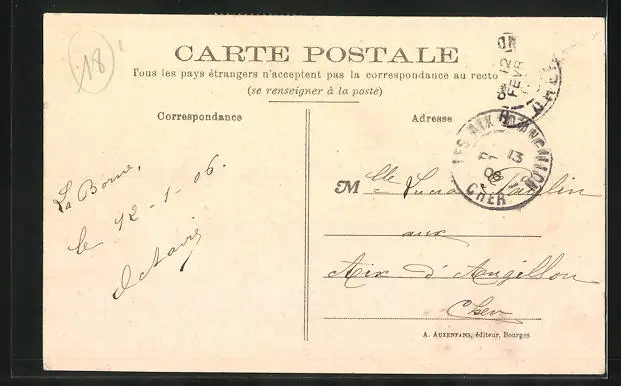 18
CARTE POSTALE
Tous les pays étrangers n'acceptent pas la correspondance au recto
(se renseigner à la poste)
Correspondance
La Borne,
le 12-1-06.
Octavie
Adresse
LES AIX D'ANGILLON
13
06
CHER
12
FEVR
CHER
Mlle Paulin
aux
Aix d'Angillon
Cher
A. AUXENFANS, éditeur, Bourges